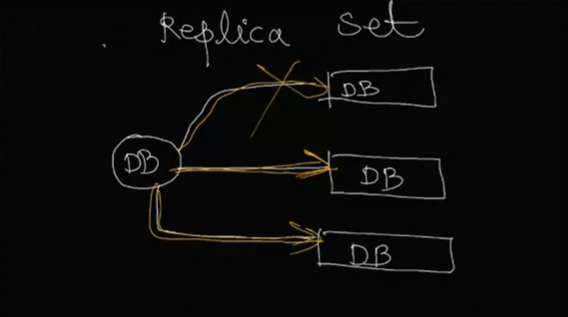 Replica Set
DB
DB
DB
DB